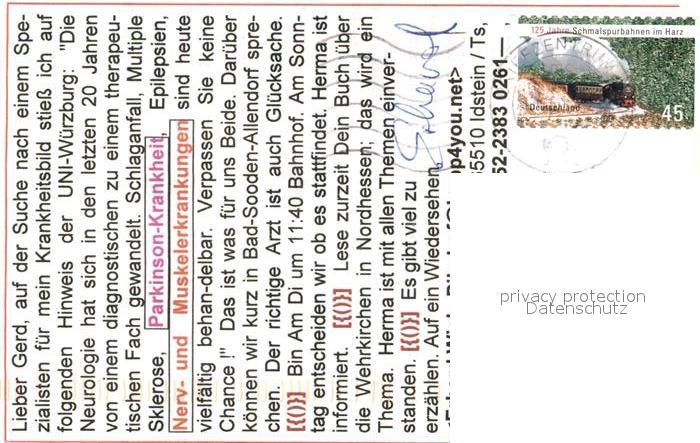 Lieber Gerd, auf der Suche nach einem Spe-
zialisten für mein Krankheitsbild stieß ich auf
folgenden Hinweis der UNI-Würzburg: "Die
Neurologie hat sich in den letzten 20 Jahren
von einem diagnostischen zu einem therapeu-
tischen Fach gewandelt. Schlaganfall, Multiple
Sklerose, Parkinson-Krankheit, Epilepsien,
Nerv- und Muskelerkrankungen sind heute
vielfältig behan-delbar. Verpassen Sie keine
Chance !" Das ist was für uns Beide. Darüber
können wir kurz in Bad-Sooden-Allendorf spre-
chen. Der richtige Arzt ist auch Glücksache.
[{()}] Bin Am Di um 11:40 Bahnhof. Am Sonn-
tag entscheiden wir ob es stattfindet. Herma ist
informiert. [{()}] Lese zurzeit Dein Buch über
die Wehrkirchen in Nordhessen, das wird ein
Thema. Herma ist mit allen Themen einver-
standen. [{()}] Es gibt viel zu
erzählen. Auf ein Wiedersehen
op4you.net>
65510 Idstein / Ts,
52-2383 0261
125 Jahre Schmalspurbahnen im Harz
Deutschland
45
privacy protection
Datenschutz